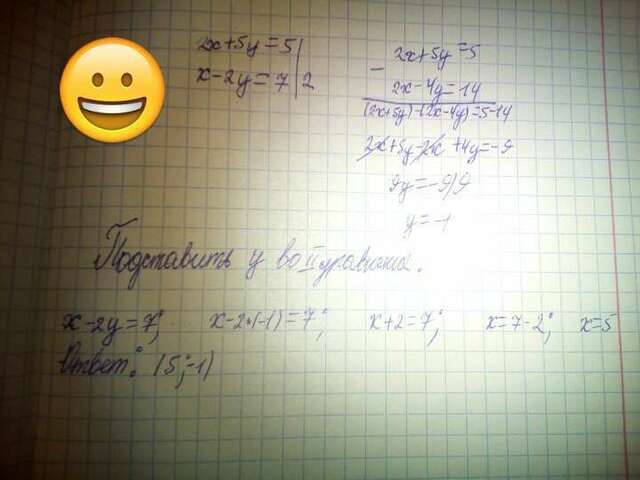 2x+5y=5
x-2y=7 | 2
- 2x+5y=5
2x-4y=14
(2x+5y)-(2x-4y)=5-14
2x+5y-2x+4y=-9
9y=-9|9
y=-1
Подставить y во II уравнение.
x-2y=7; x-2·(-1)=7; x+2=7; x=7-2; x=5
Ответ: (5;-1)